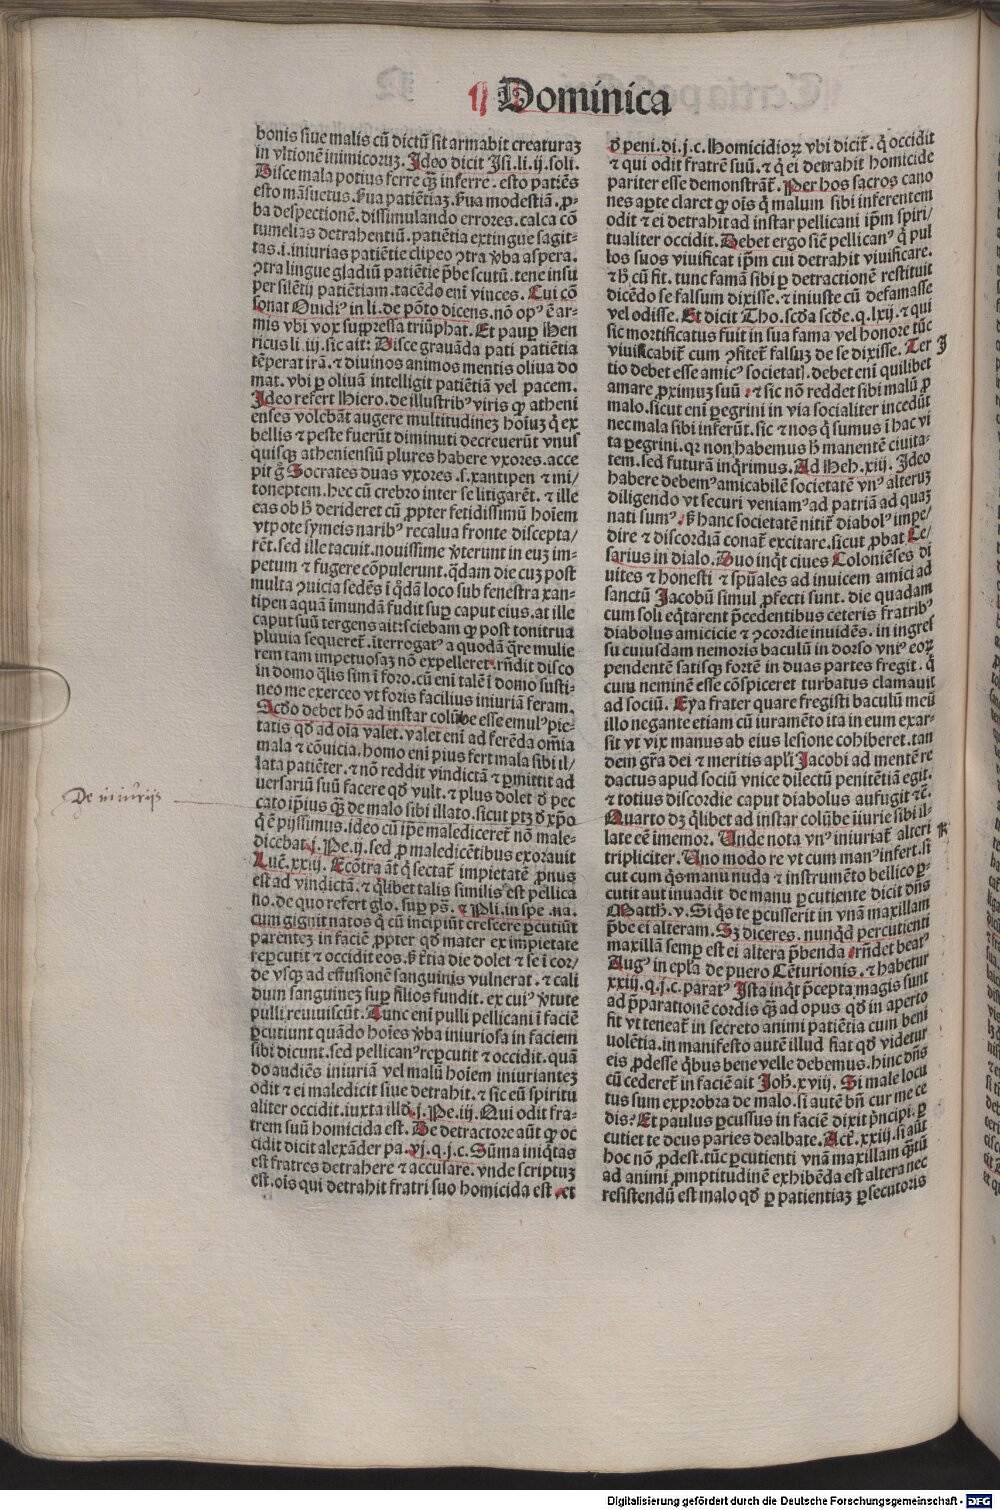 Dominica
bonis siue malis cū dictū sit armabit creaturaꝫ
in vltionē inimicoruꝫ. Ideo dicit Isi. li. ij. soli.
Disce mala potius ferre qꝫ̄ inferre. esto patiēs
esto māsuetus. ẜua patiētiaꝫ. ẜua modestiā. ꝓ⸗
ba despectionē. dissimulando errores. calca cō
tumelias detrahentiū. patiētia extingue sagit⸗
tas. i. iniurias patiētie clipeo ꝯtra v̓ba aspera.
ꝯtra lingue gladiū patiētie p̄be scutū. tene insu
per silētij patiētiam. tacēdo eni vinces. Cui cō
sonat Ouidiꝰ in li. de pōto dicens. nō opꝰ ē ar⸗
mis vbi vox suppressa triūphat. Et paup̲ Hen
ricus li. iij. sic ait: Disce grauāda pati patiētia
tēperat irā. ⁊ diuinos animos mentis oliua do
mat. vbi ꝑ oliuā intelligit patiētiā vel pacem.
Ideo refert Hiero. de illustribꝰ viris ꝙ atheni
enses volebāt augere multitudineꝫ hoīuꝫ q̄ ex
bellis ⁊ peste fuerūt diminuti decreuerūt vnus
quisqꝫ atheniensiū plures habere vxores. acce
pit g̊ Socrates duas vxores. s. xantipen ⁊ mi/
toneptem. hec cū crebro inter se litigarēt. ⁊ ille
eas ob hͨ derideret cū ꝓpter fetidissimū hoīem
vtpote symeis naribꝰ recalua fronte discepta/
rēt. sed ille tacuit. nouissime v̓terunt in euꝫ im⸗
petum ⁊ fugere cōpulerunt. q̄dam die cuꝫ post
multa ꝯuicia sedēs ī q̊dā loco sub fenestra xan⸗
tipen aquā imundā fudit suꝑ caput eius. at ille
caput suū tergens ait: sciebam ꝙ post tonitrua
pluuia sequeret᷑. īterrogatꝰ a quodā q̄re mulie
rem tam impetuosaꝫ nō expelleret. rn̄dit disco
in domo q̄lis sim ī foro. cū eni talē ī domo susti⸗
neo me exerceo vt foris facilius iniuriā feram.
Scd̓o debet hō ad instar colūbe esse emulꝰ pie⸗
tatis qd̓ ad oīa valet. valet eni ad ferēda om̄ia
mala ⁊ cōuicia. homo eni pius fert mala sibi il/
lata patiēter. ⁊ nō reddit vindictā ⁊ ꝑmittit ad
uersariū suū facere qd̓ vult. ⁊ plus dolet d̓ pec
cato ip̄ius qꝫ̄ de malo sibi illato. sicut ptꝫ d̓ xp̄o
q̇ ē pijssimus. ideo cū ip̄e malediceret᷑ nō male⸗
dicebat. j. Pe. ij. sed ꝓ maledicētibus exorauit
Luc̄. xxiij. Ecōtra āt q̇ sectat᷑ impietatē ꝓnus
est ad vindictā. ⁊ q̇libet talis similis est pellica
no. de quo refert glo. suꝑ ps̄. ⁊ Pli. in spe. na.
cum gignit natos q̇ cū incipiūt crescere ꝑcutiūt
parenteꝫ in faciē ꝓpter qd̓ mater ex impietate
reꝑcutit ⁊ occidit eos. ẜ t̓tia die dolet ⁊ se ī cor/
de vsqꝫ ad effusionē sanguinis vulnerat. ⁊ cali
dum sanguineꝫ suꝑ filios fundit. ex cuiꝰ v̓tute
pulli reuiuiscūt. Tunc eni pulli pellicani ī faciē
ꝑcutiunt quādo hoīes v̓ba iniuriosa in faciem
sibi dicunt. sed pellicanꝰ reꝑcutit ⁊ occidit. quā
do audiēs iniuriā vel malū hoīem iniurianteꝫ
odit ⁊ ei maledicit siue detrahit. ⁊ sic eū spiritu
aliter occidit. iuxta illd̓. j. Pe. iij. Qui odit fra⸗
trem suū homicida est. De detractore aūt ꝙ oc
cidit dicit alexāder pa. vj. q. j. c. Sūma iniq̇tas
est fratres detrahere ⁊ accusare. vnde scriptuꝫ
est. oīs qui detrahit fratri suo homicida est. et
d̓ peni. di. j. c. Homicidioꝝ vbi dicit᷑. q̇ occidit
⁊ qui odit fratrē suū. ⁊ q̇ ei detrahit homicide
pariter esse demonstrāt᷑. Per hos sacros cano
nes aꝑte claret ꝙ oīs q̇ malum sibi inferentem
odit ⁊ ei detrahit ad instar pellicani ip̄m spiri/
tualiter occidit. Debet ergo siē pellicanꝰ q̇ pul
los suos viuificat ip̄m cui detrahit viuificare.
⁊ hͨ cū fit. tunc famā sibi ꝑ detractionē restituit
dicēdo se falsum dixisse. ⁊ iniuste cū defamasse
vel odisse. Et dicit Tho. scd̓a scd̓e. q. lxij. ⁊ qui
sic mortificatus fuit in sua fama vel honore tūc
viuificabit᷑ cum ꝯfitet᷑ falsuꝫ de se dixisse. Ter
tio debet esse amicꝰ societatꝭ. debet eni quilibet
amare ꝓximuꝫ suū. ⁊ sic nō reddet sibi malū ꝓ
malo. sicut eni ꝑegrini in via socialiter incedūt
nec mala sibi inferūt. sic ⁊ nos q̇ sumus ī hac vi
ta ꝑegrini. qr non habemus hͨ manentē ciuita⸗
tem. sed futurā inq̇rimus. Ad Heb. xiij. Ideo
habere debemꝰ amicabilē societatē vnꝰ alteruꝫ
diligendo vt securi veniamꝰ ad patriā ad quaꝫ
nati sumꝰ. ẜ hanc societatē nitit᷑ diabolꝰ impe/
dire ⁊ discordiā conat᷑ excitare. sicut ꝓbat Ce/
sarius in dialo. Duo inq̇t ciues Coloniēses di
uites ⁊ honesti ⁊ spūales ad inuicem amici ad
sanctū Jacobū simul ꝓfecti sunt. die quadam
cum soli eq̇tarent p̄cedentibus ceteris fratribꝰ
diabolus amicicie ⁊ ꝯcordie inuidēs. in ingres
su cuiusdam nemoris baculū in dorso vniꝰ eoꝝ
pendentē satisqꝫ fortē in duas partes fregit. q̇
cum neminē esse cōspiceret turbatus clamauit
ad sociū. Eya frater quare fregisti baculū meū
illo negante etiam cū iuramēto ita in eum exar⸗
sit vt vix manus ab eius lesione cohiberet. tan
dem gr̄a dei ⁊ meritis apl̓i Jacobi ad mentē re
dactus apud sociū vnice dilectū penitētiā egit.
⁊ totius discordie caput diabolus aufugit ⁊c̄.
Quarto dꝫ q̇libet ad instar colūbe īiurie sibi il⸗
late eē īmemor. Unde nota vnꝰ iniuriat᷑ alteri
tripliciter. Uno modo re vt cum manꝰ infert. si
cut cum q̇s manu nuda ⁊ instrumēto bellico ꝑ⸗
cutit aut inuadit de manu ꝑcutiente dicit dn̄s
Matth. v. Si q̇s te ꝑcusserit in vnā maxillam
p̄be ei alteram. Sꝫ diceres. nunqd̓ percutienti
maxillā semꝑ est ei altera p̄benda. rn̄det beatꝰ
Augꝰ in epl̓a de puero Cēturionis. ⁊ habetur
xxiij. q. j. c. paratꝰ Ista inq̇t p̄cepta magis sunt
ad p̄parationē cordis qꝫ̄ ad opus qd̓ in aperto
fit vt teneat᷑ in secreto animi patiētia cum beni
uolētia. in manifesto autē illud fiat qd̓ videtur
eis ꝓdesse q̇bus bene velle debemus. hinc dn̄s
cū cederet᷑ in faciē ait Joh̄. xviij. Si male locu
tus sum exprobra de malo. si autē bn̄ cur me ce
dis? Et paulus ꝑcussus in faciē dixit p̄ncipi. ꝑ
cutiet te deus paries dealbate. Act̄. xxiij. si aūt
hoc nō ꝓdest. tūc ꝑcutienti vnā maxillam qꝫ̄tū
ad animi ꝓmptitudinē exhibēda est altera nec
resistendū est malo qd̓ ꝑ patientiaꝫ ꝑsecutoris
De iniurijs
J
K
Digitalisierung gefördert durch die Deutsche Forschungsgemeinschaft - DFG